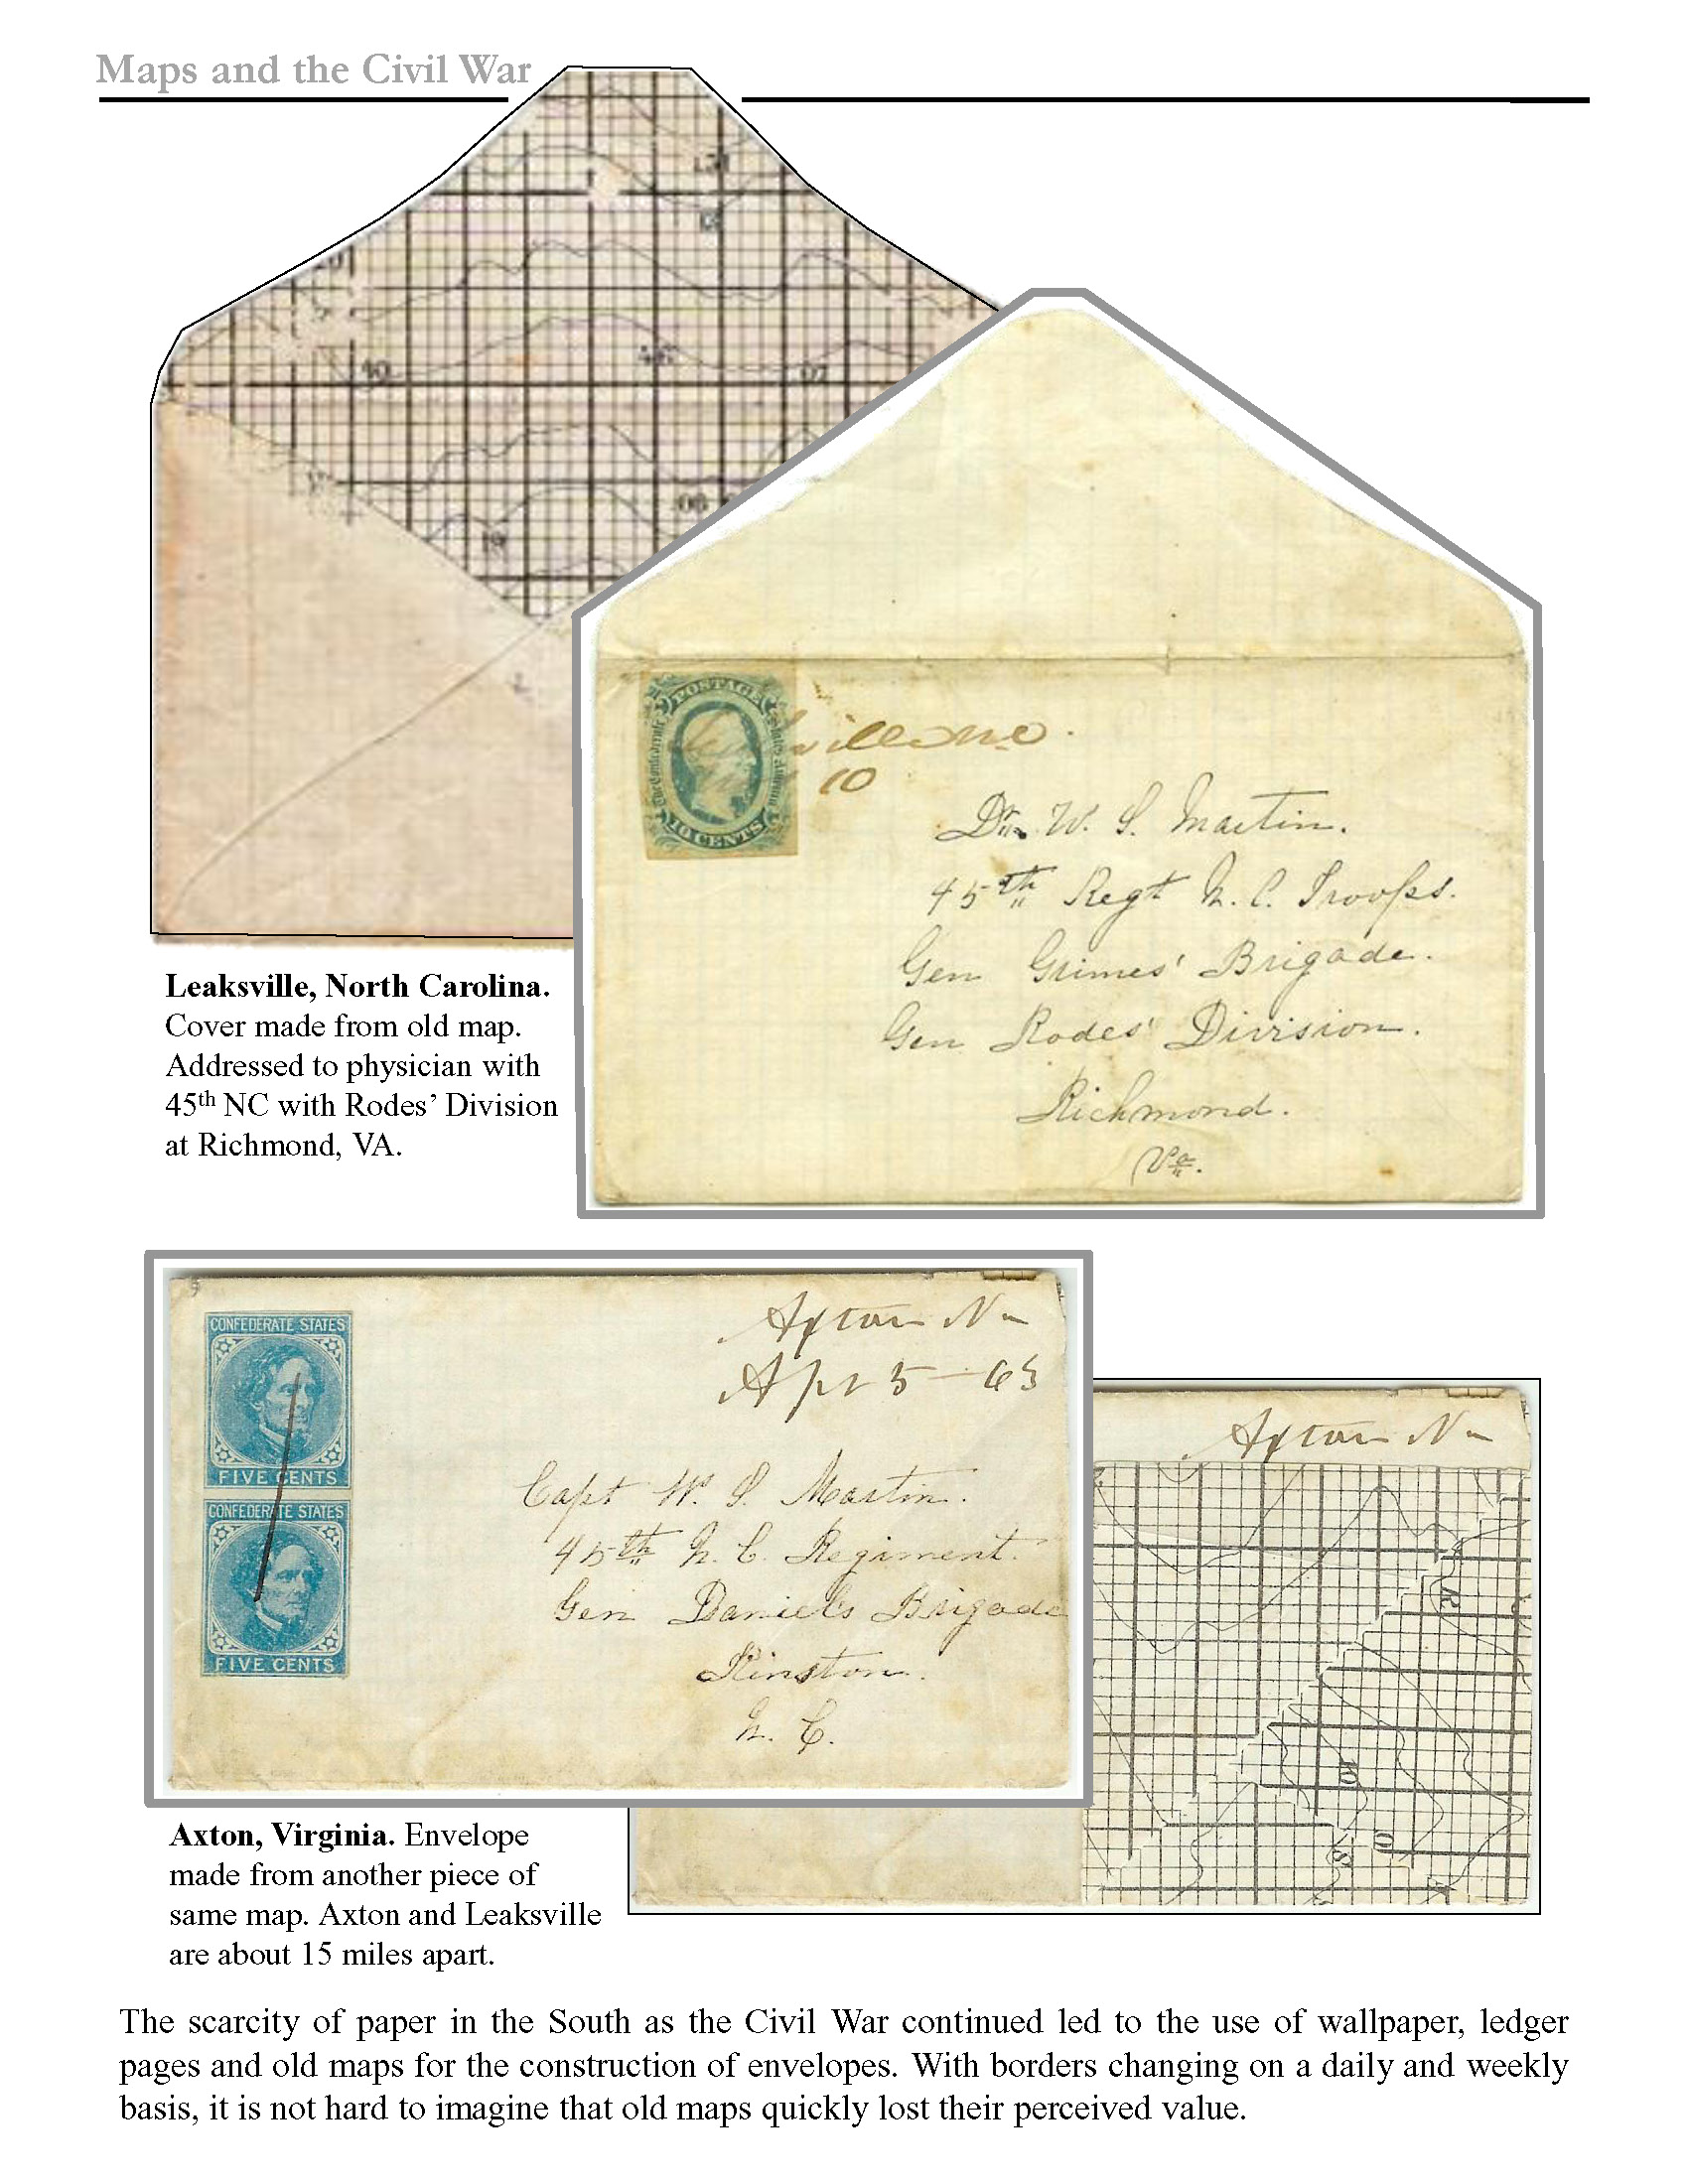 Maps and the Civil War
POSTAGE
The Confederate States of America
10 CENTS
ville N.C.
10
Dr. W. S. Martin.
45th Regt N. C. Troops.
Gen Grimes' Brigade.
Gen Rodes' Division.
Richmond.
Va.
Leaksville, North Carolina.
Cover made from old map.
Addressed to physician with
45th NC with Rodes’ Division
at Richmond, VA.
CONFEDERATE STATES
FIVE CENTS
CONFEDERATE STATES
FIVE CENTS
Axton Va
Apr 5 – 63
Capt W. S. Martin.
45th N. C. Regiment.
Gen Daniel's Brigade
Kinston.
N. C.
Axton Va
10
Axton, Virginia. Envelope
made from another piece of
same map. Axton and Leaksville
are about 15 miles apart.
The scarcity of paper in the South as the Civil War continued led to the use of wallpaper, ledger
pages and old maps for the construction of envelopes. With borders changing on a daily and weekly
basis, it is not hard to imagine that old maps quickly lost their perceived value.